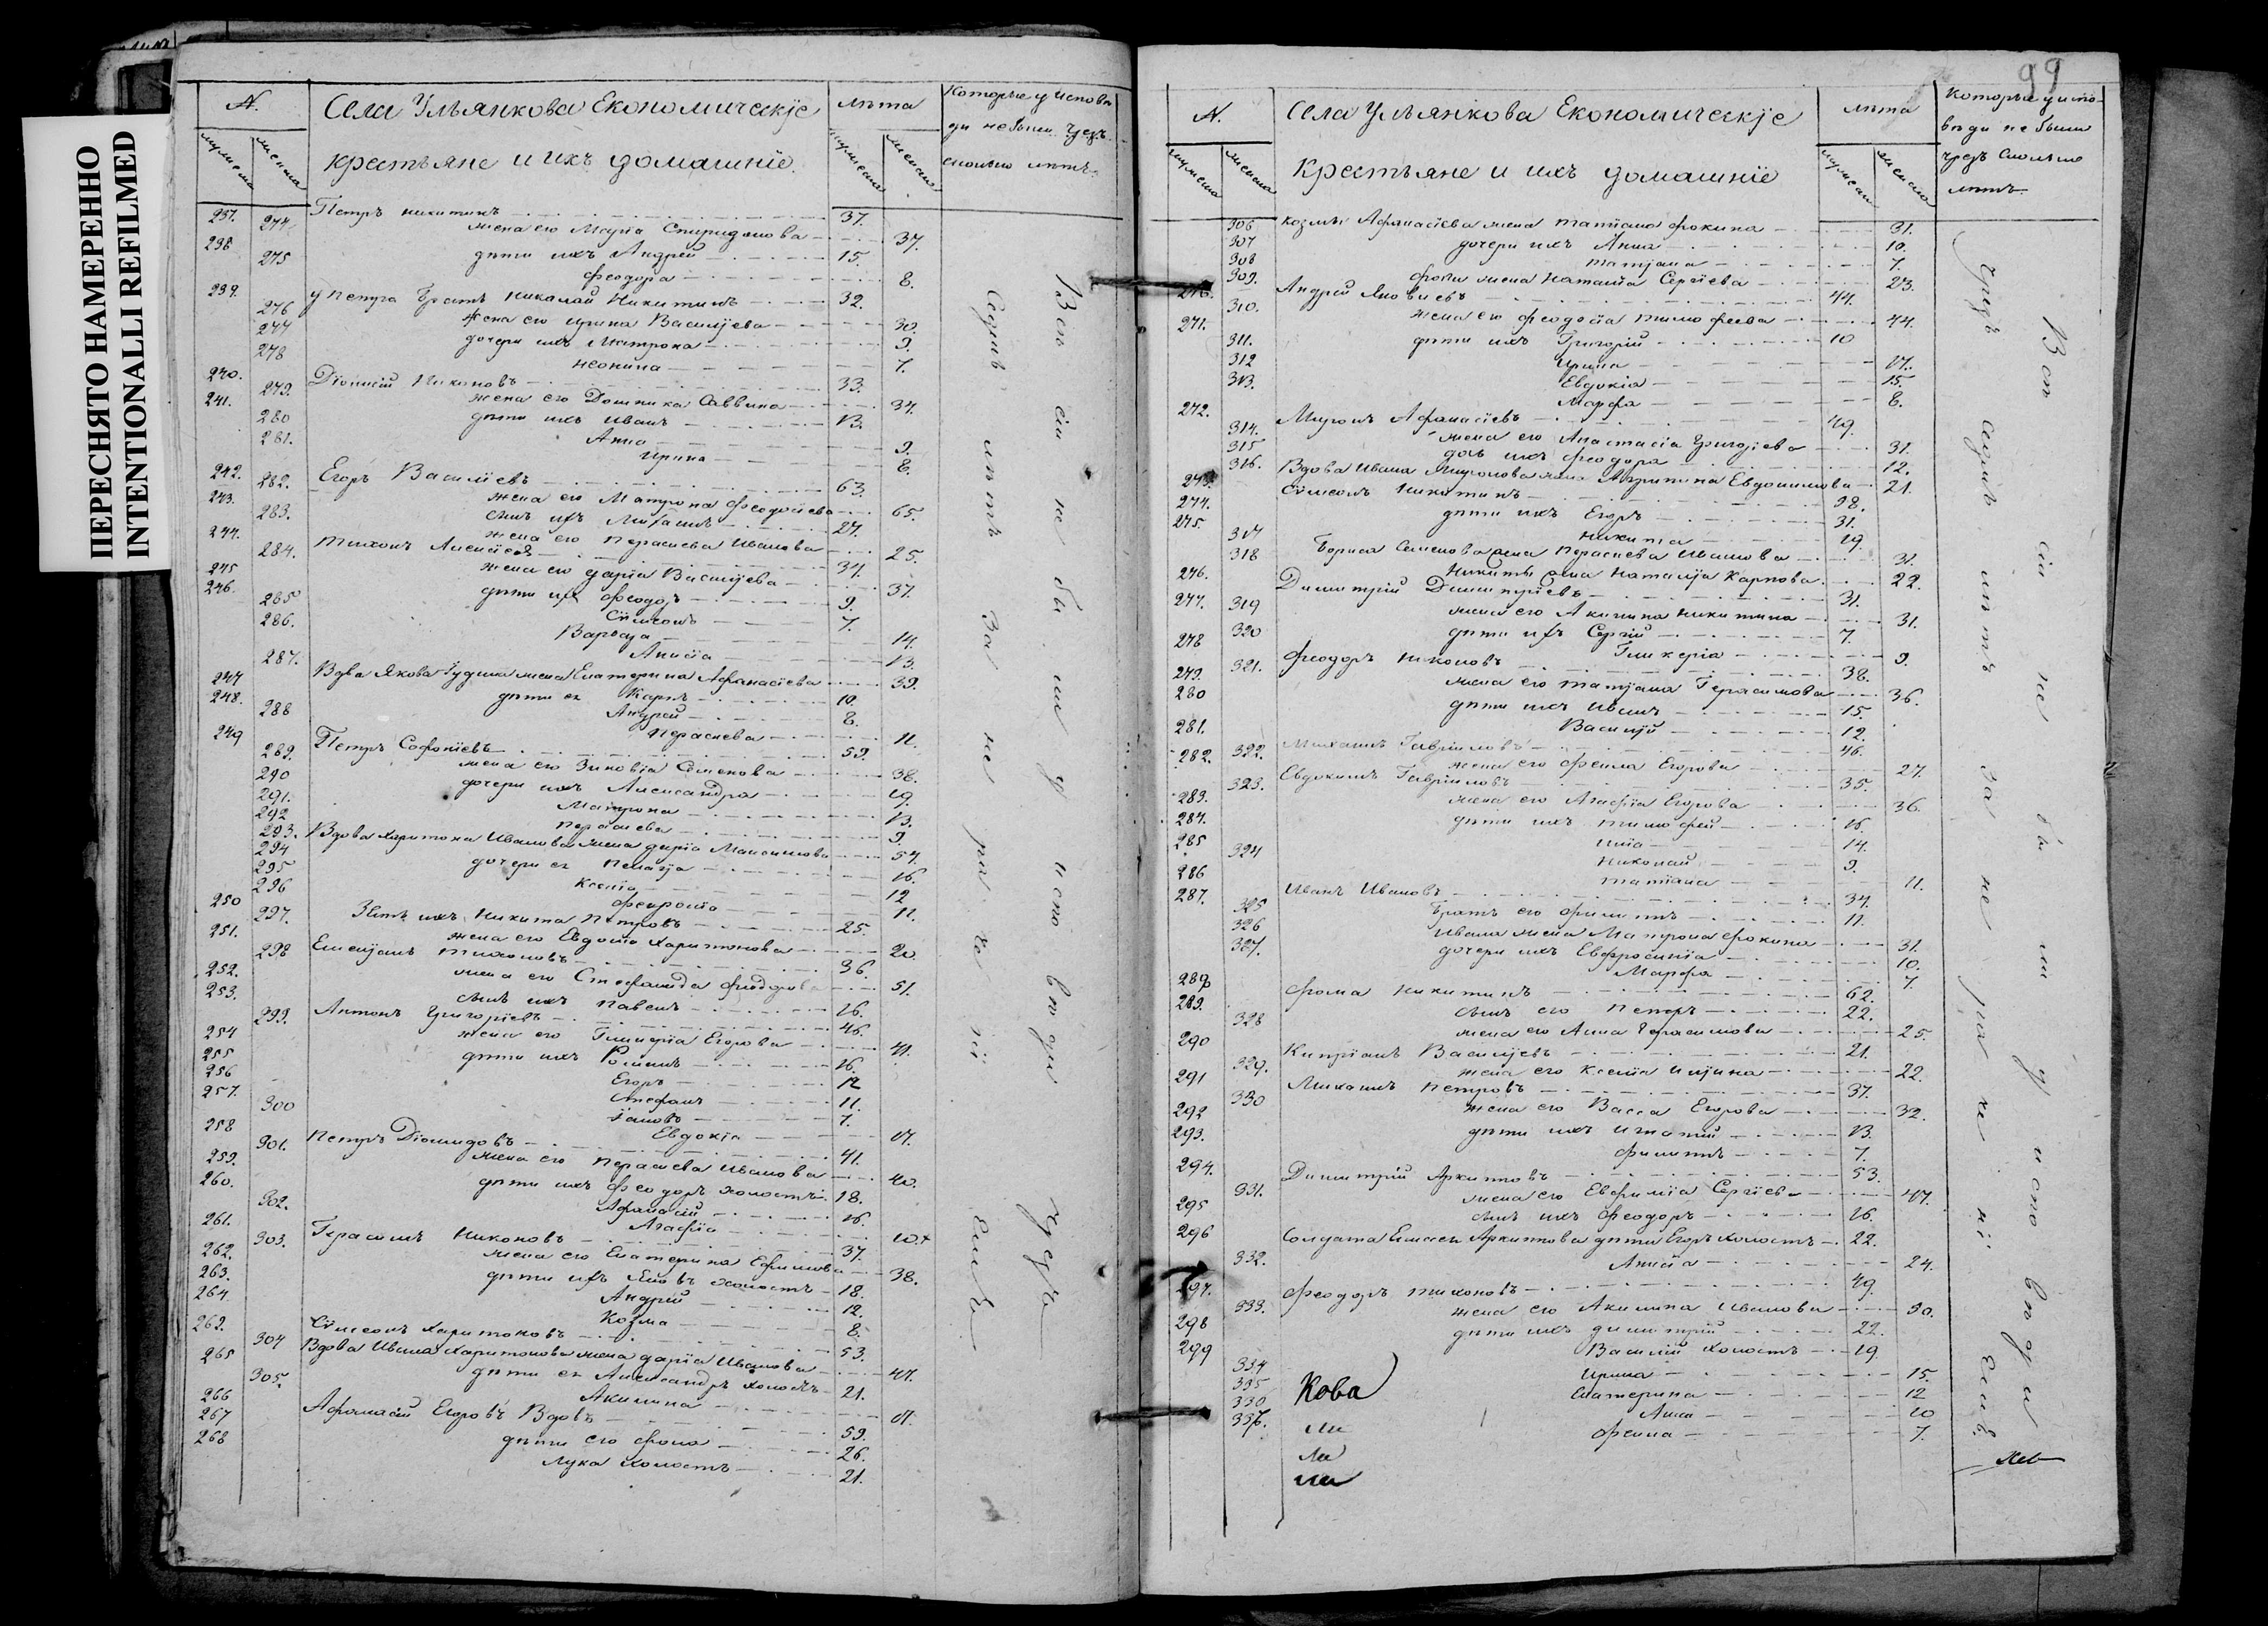 ПЕРЕСНЯТО НАМЕРЕННО
INTENTIONALLI REFILMED
№.
Села Ульянкова Економическіе
крестьяне и ихъ домашніе.
лѣта
Которые у исповѣ
ди небыли чрезъ
сколько лѣтъ.
237. 274. Петръ Никитинъ 37.
жена его Марѳа Спиридонова 37.
238 275 дѣти ихъ Андрей 15.
Феодора 8.
239. 276 у Петра братъ Николай Никитинъ 32.
277 жена его Ирина Васильева 30.
278 дочери ихъ Матрона 9.
Неонила 7.
240. 279. Діонисій Никоновъ 33.
241. жена его Домника Саввина 34.
280 дѣти ихъ Иванъ 13.
281. Анна 9.
Ирина 8.
242. 282. Егоръ Василіевъ 63.
243. жена его Матрона Феодосіева 65.
283. сынъ ихъ Михаилъ 27.
244. жена его Параскева Иванова 25.
284. Тихонъ Алексіевъ 34.
245 жена его Дарія Васильева 37.
246. 285 дѣти ихъ Феодоръ 9.
286. Сѵмеонъ 7.
Варвара 14.
287. Анисія 13.
247 Вдова Якова жена Екатерина Афанасіева 39.
248. дѣти ея Карпъ 10.
288 Андрей 8.
Параскева 11.
249 289. Петръ Софоніевъ 59.
жена его Зиновія Семенова 38.
290 дочери ихъ Александра 19.
291. Матрона 13.
292 Параскева 9.
293. Вдова Харитона Иванова жена Дарія Максимова 54.
294 дочери ея Пелагія 16.
295 Ксенія 12
296 Февронія 11.
250 297. Зять ихъ Никита Петровъ 25.
251. жена его Евдокія Харитонова 20.
298 Емельянъ Тихоновъ 36.
252. жена его Стефанида Феодорова 51.
253. сынъ ихъ Павелъ 16.
299. Антонъ Григоріевъ 46.
254 жена его Гликерія Егорова 41.
255 дѣти ихъ Романъ 16.
256 Егоръ 12
257. Стефанъ 11.
300 Іаковъ 7.
258 Евдокія 17.
301. Петръ Діомидовъ 41.
259. жена его Параскева Иванова 40.
260. дѣти ихъ Феодоръ холостъ 18.
302. Афанасій 16.
261. Агафія 10.
303. Герасимъ Никоновъ 37.
262. жена его Екатерина Ефимова 38.
263. дѣти ихъ Яковъ холостъ 18.
264. Андрей 12.
Козма 8.
262. Сѵмеонъ Харитоновъ 53.
304 Вдова Ивана Харитонова жена Дарія Иванова 47.
265 305. дѣти ея Александръ холостъ 21.
266 Акилина 17.
267 Афанасій Егоровъ Вдовъ 59.
268 дѣти его Фома 26.
Лука холостъ 21.
Всѣ сіи не были у исповѣди чрезъ
Седмь лѣтъ За не
99
№.
Села Ульянкова Економическіе
Крестьяне и ихъ домашніе
лѣта
Которые у испо-
вѣди не были
чрезъ сколько
лѣтъ.
306 Козмы Афанасіева жена Татіана Фокина 31.
307 дочери ихъ Анна 10.
308 Татіана 7.
309. Фомы жена Наталія Сергіева 23.
Андрей Яковлевъ 44.
310. жена его Феодосія Тимофеева 44.
271. 311. дѣти ихъ Григорій 10
312 Ирина 17.
313. Евдокія 15.
Марфа 8.
272. 314. Миронъ Афанасіевъ 49.
315 жена его Анастасія Григоріева 31.
316. дочь ихъ Феодора 12.
273. Вдова Ивана Миронова жена Агрипина Евдокимова 21.
274. Сѵмеонъ Никитинъ 98.
275. дѣти ихъ Егоръ 31.
317 Никита 19.
318 Бориса Семенова жена Параскева Иванова 31.
276. Никиты жена Наталія Карпова 22.
Димитрій Димитріевъ 31.
277. 319 жена его Акилина Никитина 31.
278 320 дѣти ихъ Сергій 7
Гликерія 9.
279. 321. Феодоръ Никоновъ 38.
280 жена его Татіана Герасимова 36.
281. дѣти ихъ Иванъ 15.
Василій 12.
282. 322. Михаилъ Гавріиловъ 46.
жена его Фекла Егорова 27.
283. 323. Евдокимъ Гавріиловъ 35.
284. жена его Агафія Егорова 36.
285 дѣти ихъ Тимофей 16.
324 Илія 14.
286 Николай 9.
Татіана 11.
287. 325 Иванъ Ивановъ 34.
326 Братъ его Филиппъ 11.
327. Ивана жена Матрона Фокина 31.
дочери ихъ Евфросинія 10.
Марфа 7.
288 Фома Никитинъ 62.
289. 328 сынъ его Петръ 22.
жена его Анна Герасимова 25.
290 329. Кипріанъ Васильевъ 21.
жена его Ксенія Ильина 22.
291 330 Михаилъ Петровъ 37.
292 жена его Васса Егорова 32.
293. дѣти ихъ Игнатій 13.
Филиппъ 7.
294. 331. Димитрій Архиповъ 53.
жена его Евфимія Сергіева 47.
295 сынъ ихъ Феодоръ 16.
296 Солдата Архипова дѣти Егоръ холостъ 22.
332. Анисія 24.
297. 333. Феодоръ Тихоновъ 49.
298 жена его Акилина Иванова 50.
299 дѣти ихъ Димитрій 22.
Василій холостъ 19
334 Ирина 15.
335 Екатерина 12
336 Анна 10
337. Фекла 7.
Кова
Всѣ сіи не были у исповѣди
чрезъ седмь лѣтъ за не